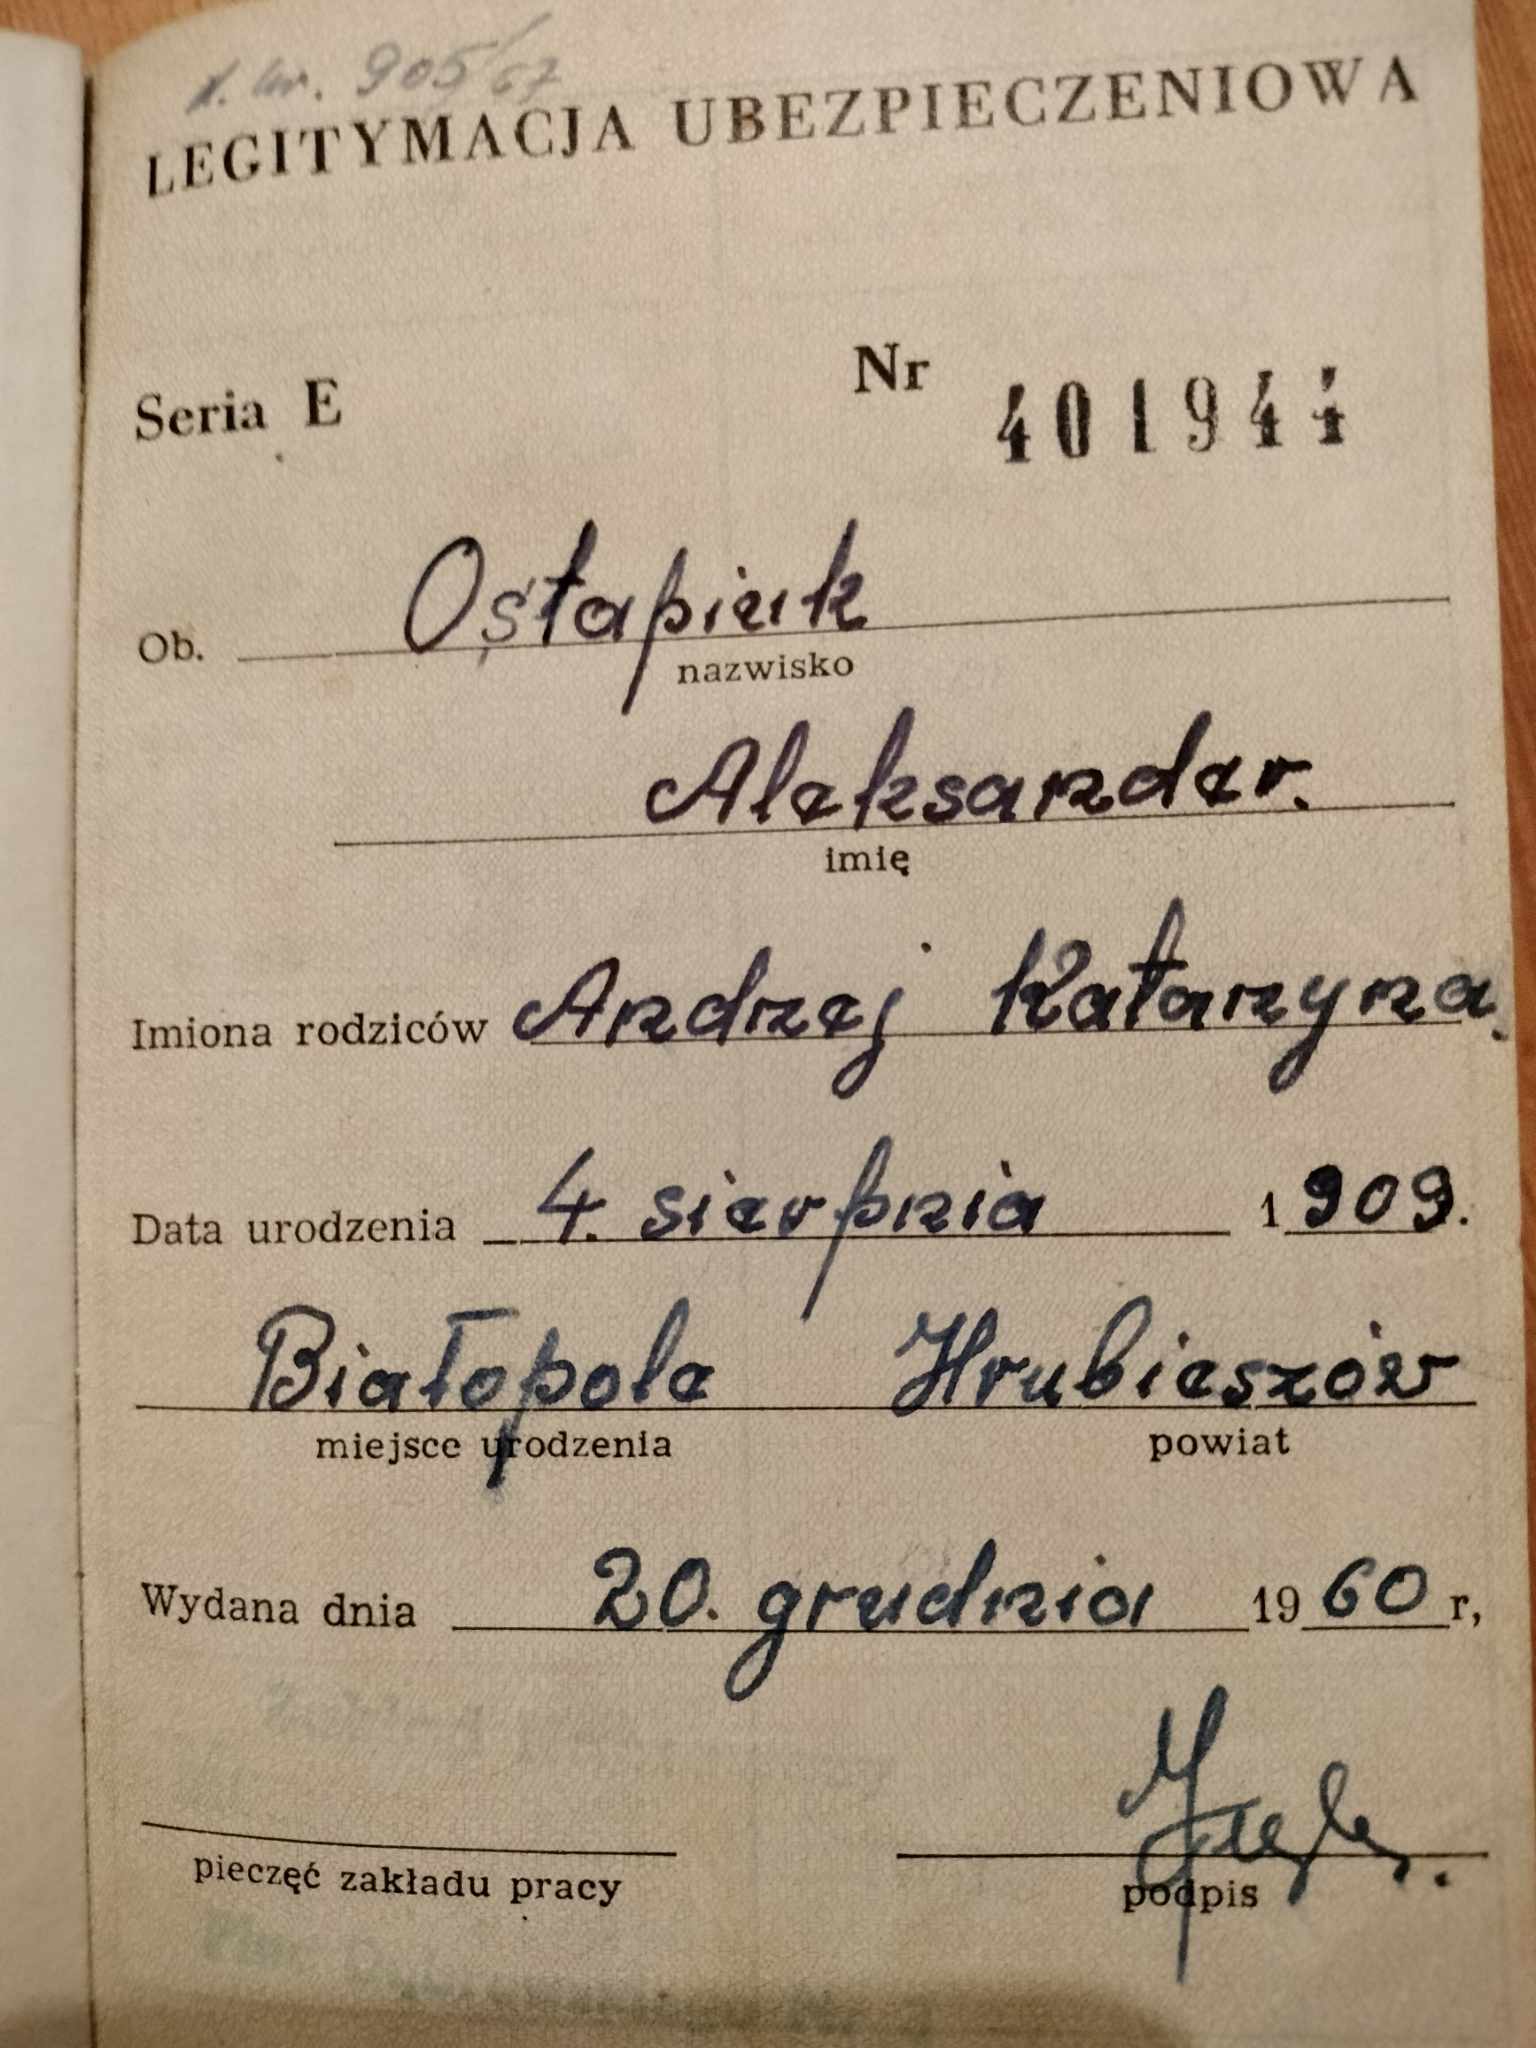 905/67
LEGITYMACJA UBEZPIECZENIOWA
Seria E Nr 401944
Ob. Ostapiuk
nazwisko
Aleksander.
imię
Imiona rodziców Andrzej Katarzyna.
Data urodzenia 4. sierpnia 1909.
Białopole Hrubieszów
miejsce urodzenia powiat
Wydana dnia 20. grudnia 1960 r,
pieczęć zakładu pracy podpis